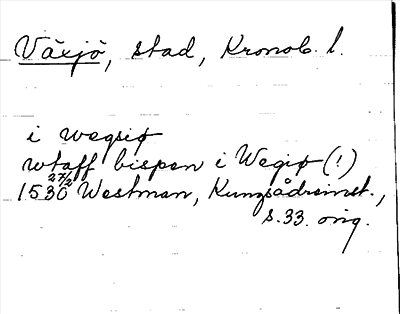 Växjö, stad, Kronob. l.
i wegsiø
wtaff bispen i Wegiø (!)
1530 27/2 Westman, Kungsådreinst.,
s. 33. orig.